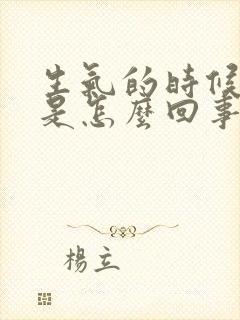 生氣的時候
是怎麼回事
楊立